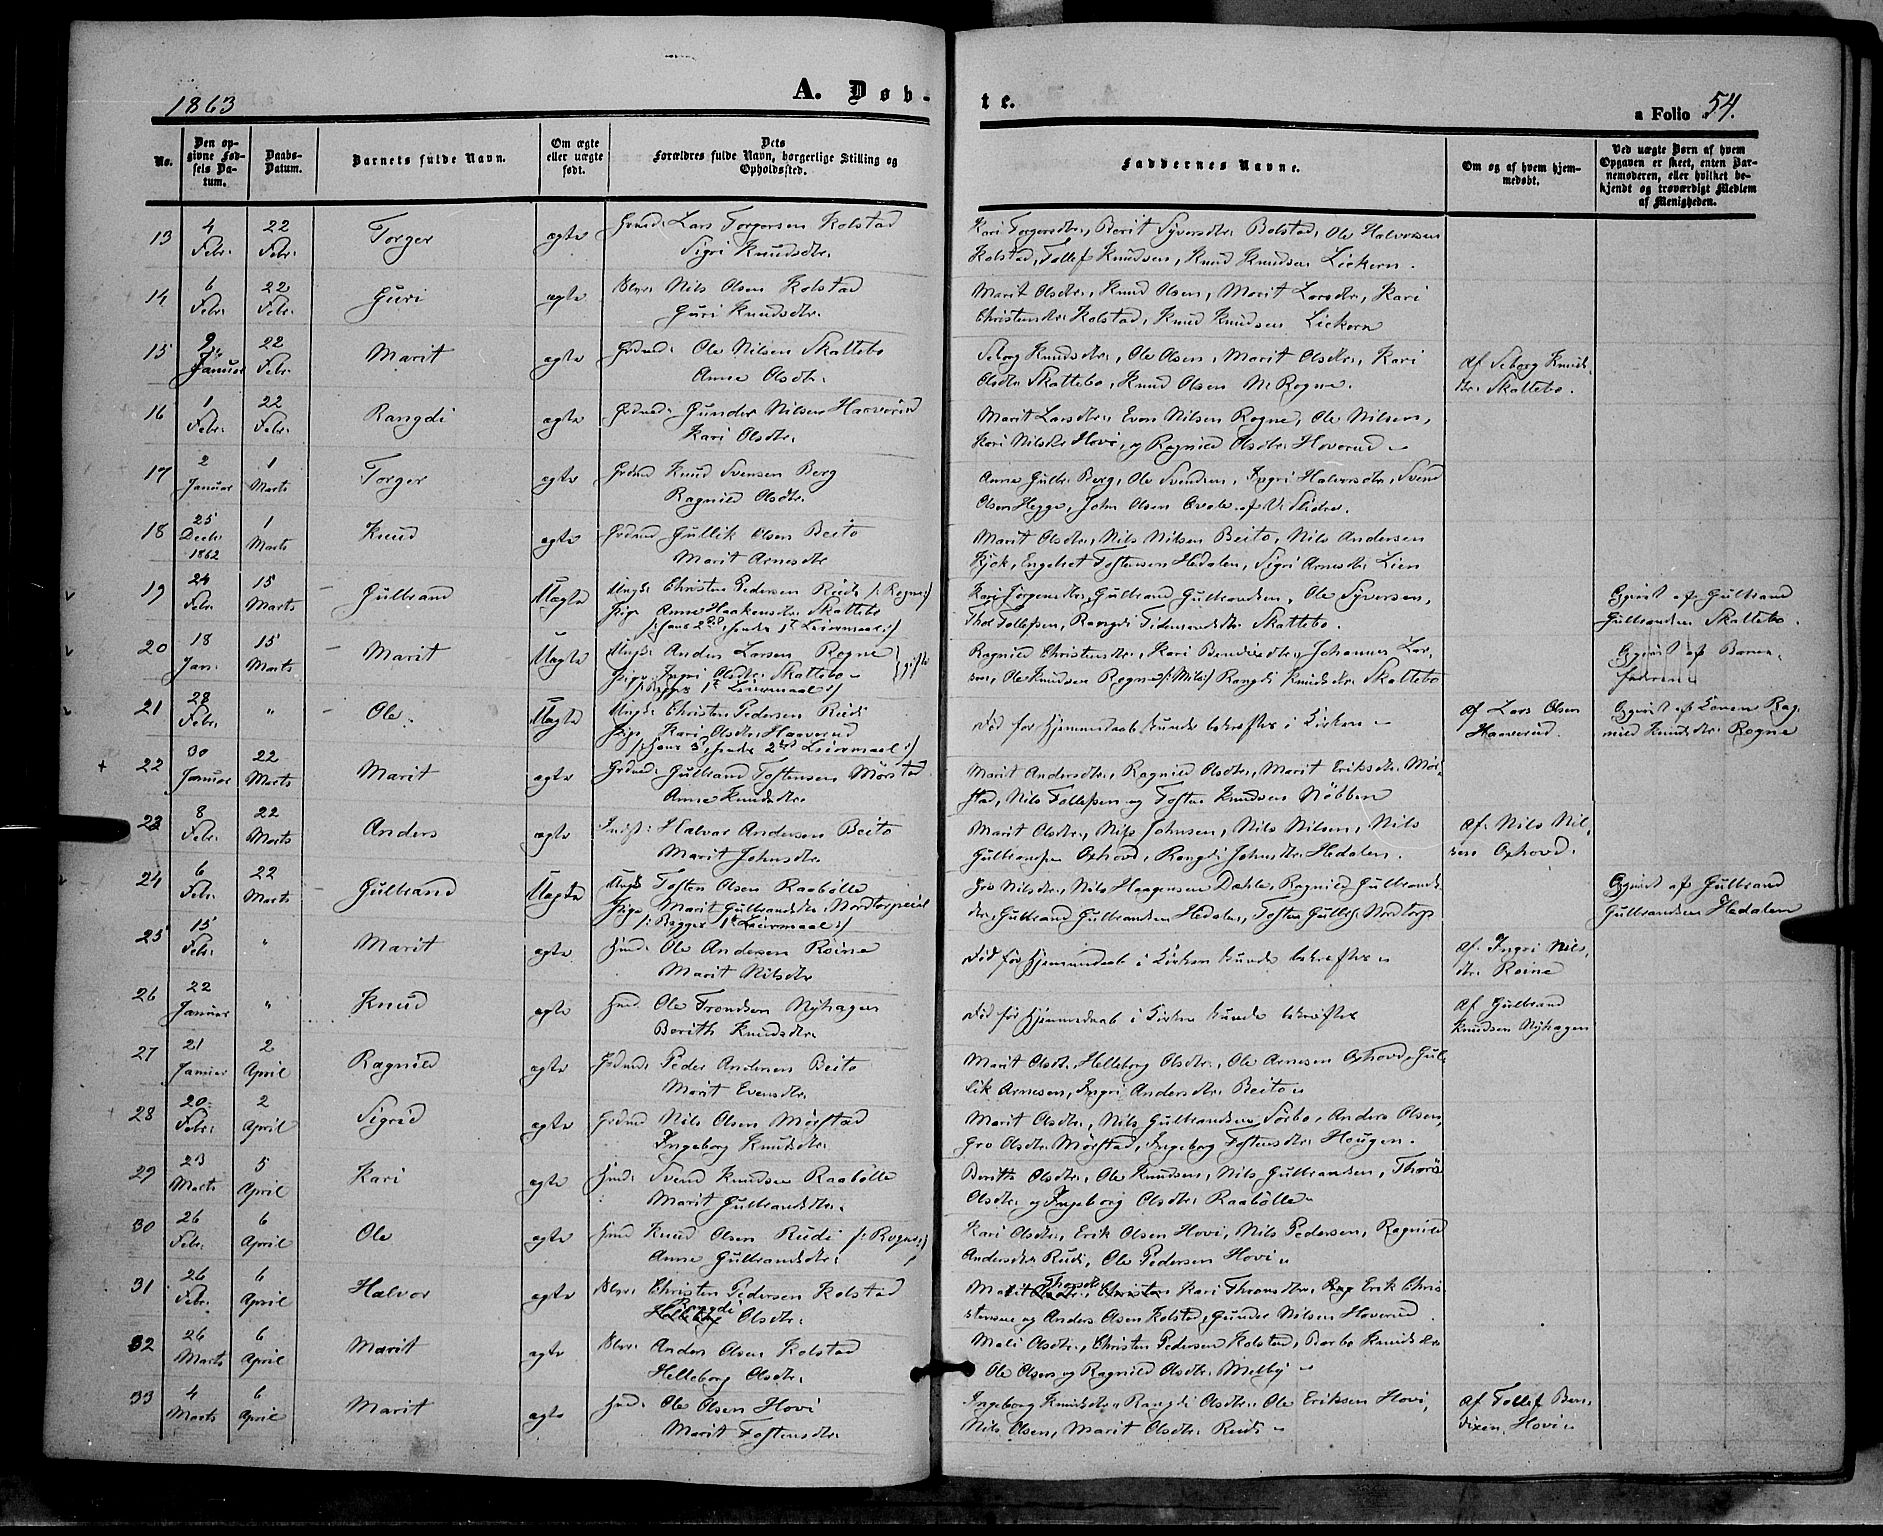 1863
A. Døb-
te.
a Folio 54.
No.
Den op-
givne Fød-
sels Da-
tum.
Daabs-
Datum.
Barnets fulde Navn.
Om ægte
eller uægte
født.
Dets
Forældres fulde Navn, borgerlige Stilling og
Opholdssted.
Faddernes Navne.
Om og af hvem hjem-
medøbt.
Ved uægte Børn af hvem
Opgaven er skeet, enten Bar-
nemoderen, eller hvilket be-
kjendt og troværdigt Medlem
af Menigheden.
13 4 Febr. 22 Febr. Torger ægte Grdmd: Lars Torgersen Kolstad
Sigri Knudsdtr.
Kari Torgersdtr., Berit Syversdtr. Bolstad, Ole Halvorsen
Kolstad, Tollef Knudsen, Knud Knudsen Liekern.
14 6 Febr. 22 Febr. Guri ægte Nils Olsen Kolstad
Guri Knudsdtr.
Marit Olsdtr., Knud Olsen, Marit Larsdtr., Kari
Christensdtr. Kolstad, Knud Knudsen Liekern
15 9 Januar 22 Febr. Marit ægte Grdmd: Ole Nilsen Skattebo
Anne Olsdtr.
Seborg Knudsdtr., Ole Olsen, Marit Olsdtr., Kari
Olsdtr. Skattebo, Knud Olsen N. Rogne.
af Seborg Knuds-
dtr. Skattebo.
16 1 Febr. 22 Febr. Rangdi ægte Grdmd: Gunder Nilsen Haaverud
Kari Olsdtr.
Marit Larsdtr. Even Nilsen Rogne, Ole Nilsen,
Kari Nilsdtr. Hovi, og Ragnild Olsdtr. Hoverud
17 2 Januar 1 Marts Torger ægte Grdmd Knud Svensen Berg
Ragnild Olsdtr.
Anne Gulbr. Berg, Ole Svendsen, Ingri Halvorsdtr., Svend
Olsen Hegge, John Olsen Qvale af V. Slidre.
18 25 Decbr 1862 1 Marts Knud ægte Grdmd Gullik Olsen Beito
Marit Arnesdtr
Marit Olsdtr., Nils Nilsen Beito, Nils Andersen
Kjøk, Engebret Tostensen Hedalen, Sigri Arnesdtr. Lien
19 24 Febr. 15 Marts Gulbrand Uægte Ungk: Christen Pedersen Rudi /: Rogne :/
Pige Anne Haakensdtr. Skattebo
/: hans 2det hendes 1ste Leiermaal :/
Kari Jørgensdtr., Gulbrand Gulbrandsen, Ole Syversen,
Thor Tollefsen, Rangdi Tidemandsdtr. Skattebo.
Opgivet af Gulbrand
Gulbrandsen Skattebo.
20 18 Jan. 15 Marts Marit Uægte Ungk: Anders Larsen Rogne
Pige Ingri Olsdtr. Skattebo gifte
/: Begges 1ste Leiermaal :/
Ragnild Christensdtr., Kari Bendixsdtr., Johannes Lar-
sen, Ole Knudsen Rogne /: Nils :/ Rangdi Knudsdtr. Skattebo
Opgivet af Barne-
faderen
21 28 Febr. " Ole Uægte Ungk: Christen Pedersen Rudi
Pige Kari Olsdtr. Haaverud
/: hans 3die hendes 2det Leiermaal :/
død før Hjemmedaab kunde bekræftes i Kirken
af Lars Olsen
Haaverud.
Opgivet af Konen Rag-
nild Knudsdtr. Rogne
22 30 Januar 22 Marts Marit ægte Grdmd: Gulbrand Tostensen Mørstad
Anne Knudsdtr.
Marit Andersdtr., Ragnild Olsdtr., Marit Eriksdtr. Mør-
stad, Nils Tollefsen og Tosten Knudsen Nøbben
23 8 Febr. 22 Marts Anders ægte Indst: Halvor Andersen Beito
Marit Johnsdtr
Marit Olsdtr., Nils Johnsen, Nils Nilsen, Nils
Gulbrandsen Oxhovd, Rangdi Johnsdtr. Hedalen.
af Nils Nil-
sen Oxhovd.
24 6 Febr. 22 Marts Gulbrand Uægte Ungk Tosten Olsen Raabølle
Pige Marit Gulbrandsdtr. Nordtorpseiet
/: Begges 1ste Leiermaal :/
Gro Nilsdtr., Nils Haagensen Dahle, Ragnild Gulbrands-
dtr., Gulbrand Gulbrandsen Hedalen, Tosten Gulbr. Nordtorp
Opgivet af Gulbrand
Gulbrandsen Hedalen
25 15 Febr. " Marit ægte Hmd: Ole Andersen Roine
Marit Nilsdtr
død før Hjemmedaab i Kirken kunde bekræftes
af Ingri Nils-
dtr. Roine
26 22 Januar " Knud ægte Hmd. Ole Trondsen Nyhagen
Berith Knudsdtr.
død før Hjemmedaab i Kirken kunde bekræftes
af Gulbrand
Knudsen Nyhagen
27 21 Januar 2 April Ragnild ægte Grdmd: Peder Andersen Beito
Marit Evensdtr.
Marit Olsdtr., Helleborg Olsdtr., Ole Arnesen Oxhovd, Gul-
lik Arnesen, Ingri Andersdtr. Beito
28 20 Febr. 2 April Sigrid ægte Grdmd Nils Olsen Mørstad
Ingeborg Knudsdtr.
Marit Olsdtr., Nils Gulbrandsen Sørbo, Anders Olsen,
Gro Olsdtr. Mørstad, Ingeborg Tostensdtr. Hougen.
29 23 Marts 5 April Kari ægte Hmd: Svend Knudsen Raabølle
Marit Gulbrandsdtr.
Beritte Olsdtr., Ole Knudsen, Nils Gulbrandsen, Thora
Olsdtr. og Ingeborg Olsdtr. Raabølle
30 26 Febr. 6 April Ole ægte Hmd Knud Olsen Rudi /: Rogne :/
Anne Gulbrandsdtr.
Kari Olsdtr., Erik Olsen Hovi, Nils Pedersen, Ragnild
Andersdtr. Rudi, Ole Pedersen Hovi
31 26 Febr. 6 April Halvor ægte Christen Pedersen Kolstad
Rangdi
Helleborg Olsdtr.
Thorsdtr.
Marit Olsdtr., Christen Kari Thronsdtr., Rag Erik Chri-
stensen og Anders Olsen Kolstad, Gunder Nilsen Hoverud
32 26 Marts 6 April Marit ægte Anders Olsen Kolstad
Helleborg Olsdtr.
Mali Olsdtr., Christen Pedersen Kolstad, Barbo Knudsdtr.
Ole Olsen og Ragnild Olsdtr. Melby
33 4 Marts 6 April Marit ægte Hmd: Ole Olsen Hovi
Marit Tostensdtr.
Ingeborg Knudsdtr., Rangdi Olsdtr. Ole Eriksen Hovi,
Nils Olsen, Marit Olsdtr. Rudi
af Tollef Ben-
dixen Hovi